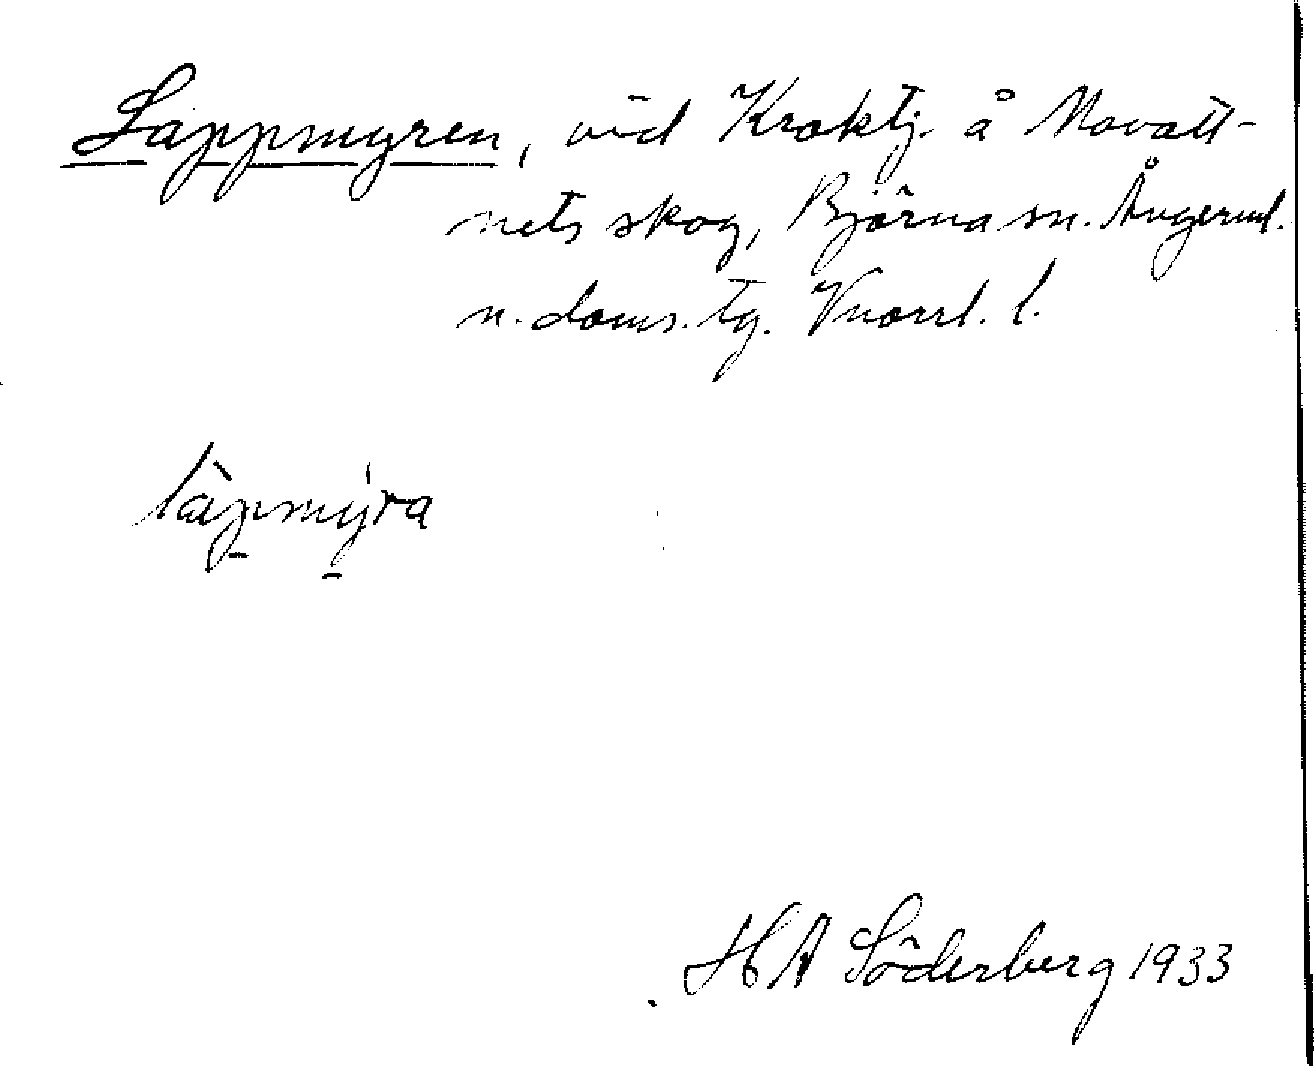 Lappmyren, vid Kroktj. å Movatt-
nets skog, Björna sn. Ångerml.
n. doms. tg. Vnorrl. l.
làpmýra
H A Söderberg 1933